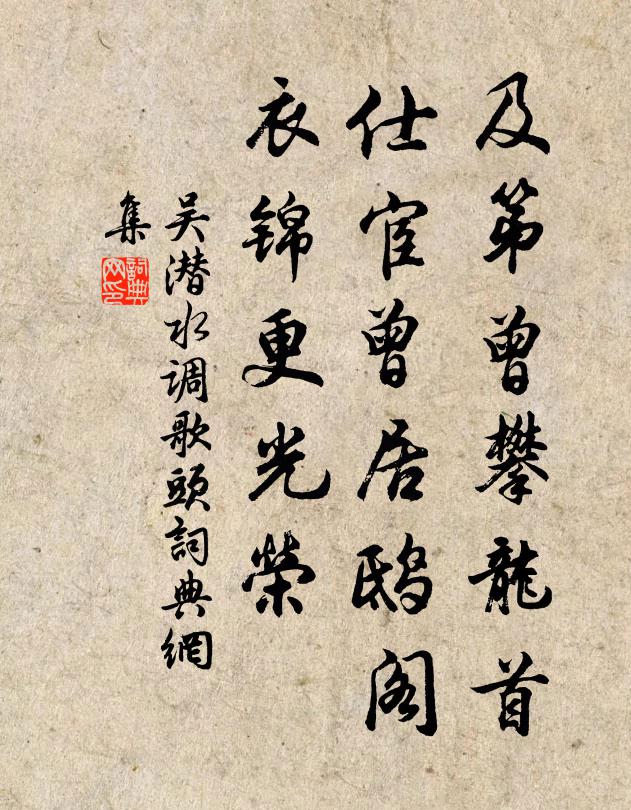 及第曾攀龍首
仕宦曾居鸱阁
衣锦更光榮
吴潜水调歌頭詞典網
集
詞典
网印